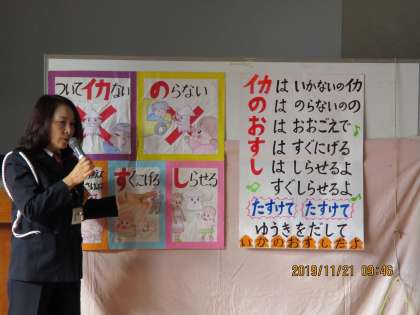 ついてイカない
のらない
すぐにげる
しらせる
イカのおすし
イカは いかないのイカ
は のらないのの
は おおごえで
は すぐにげる
は しらせるよ
すぐしらせるよ
たすけて たすけて
ゆうきをだして
いかのおすしだよ
2019/11/21 09:46